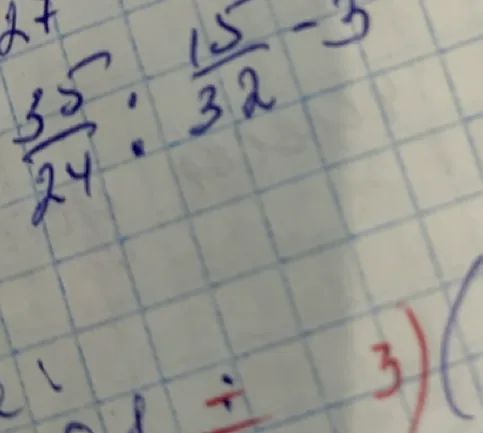 27
35/24 : 15/32 - 3
÷ 3) (